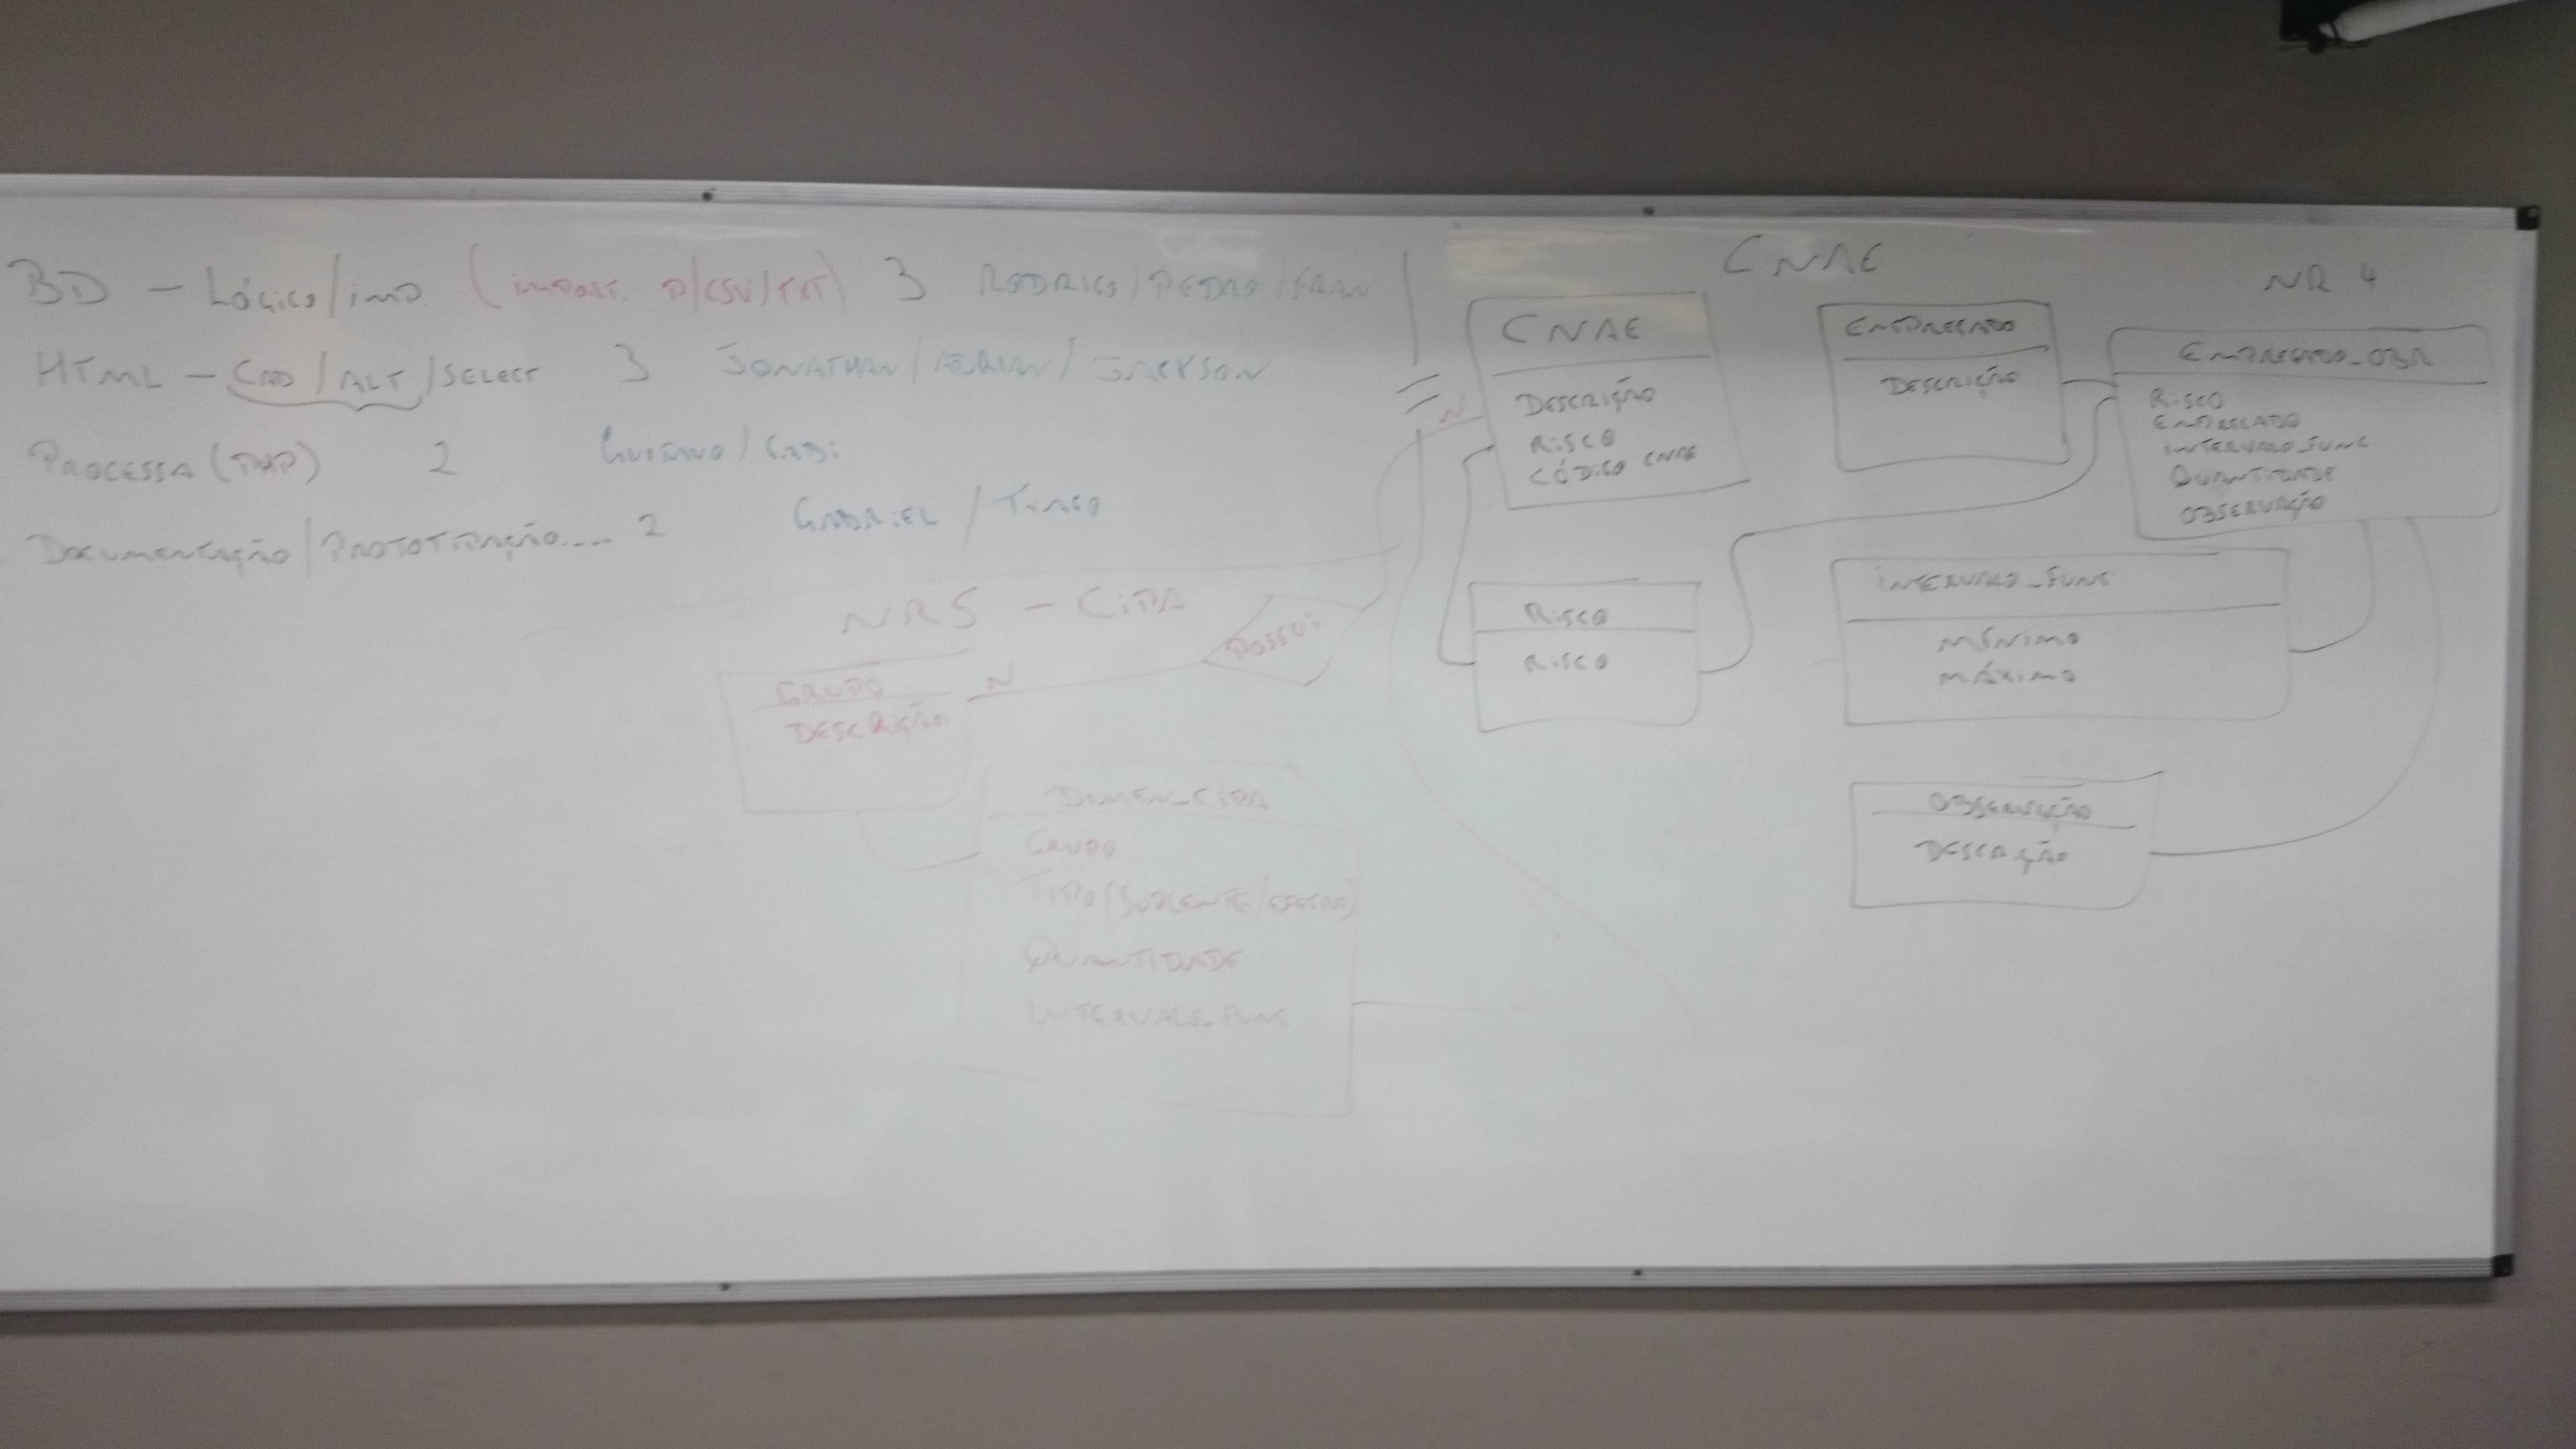 BD - Lógico/imp. (import. p/CSV/TXT) 3 RODRIGO/PEDRO/FRAN
HTML - CAD/ALT/SELECT 3 JONATHAN/ADRIAN/JACKSON
PROCESSA (PHP) 2 GUSTAVO/GABI
DOCUMENTAÇÃO/PROTOTIPAÇÃO.... 2 GABRIEL / TIAGO
NR5 - CIPA
POSSUI
N
N
GRUPO
DESCRIÇÃO
DIMEN_CIPA
GRUPO
TIPO (SUPLENTE/EFETIVO)
QUANTIDADE
INTERVALO_FUNC
CNAE
NR 4
CNAE
DESCRIÇÃO
RISCO
CÓDIGO CNAE
EMPREGADO
DESCRIÇÃO
EMPREGADO_OBR
RISCO
EMPREGADO
INTERVALO_FUNC
QUANTIDADE
OBSERVAÇÃO
RISCO
RISCO
INTERVALO_FUNC
MÍNIMO
MÁXIMO
OBSERVAÇÃO
DESCRIÇÃO